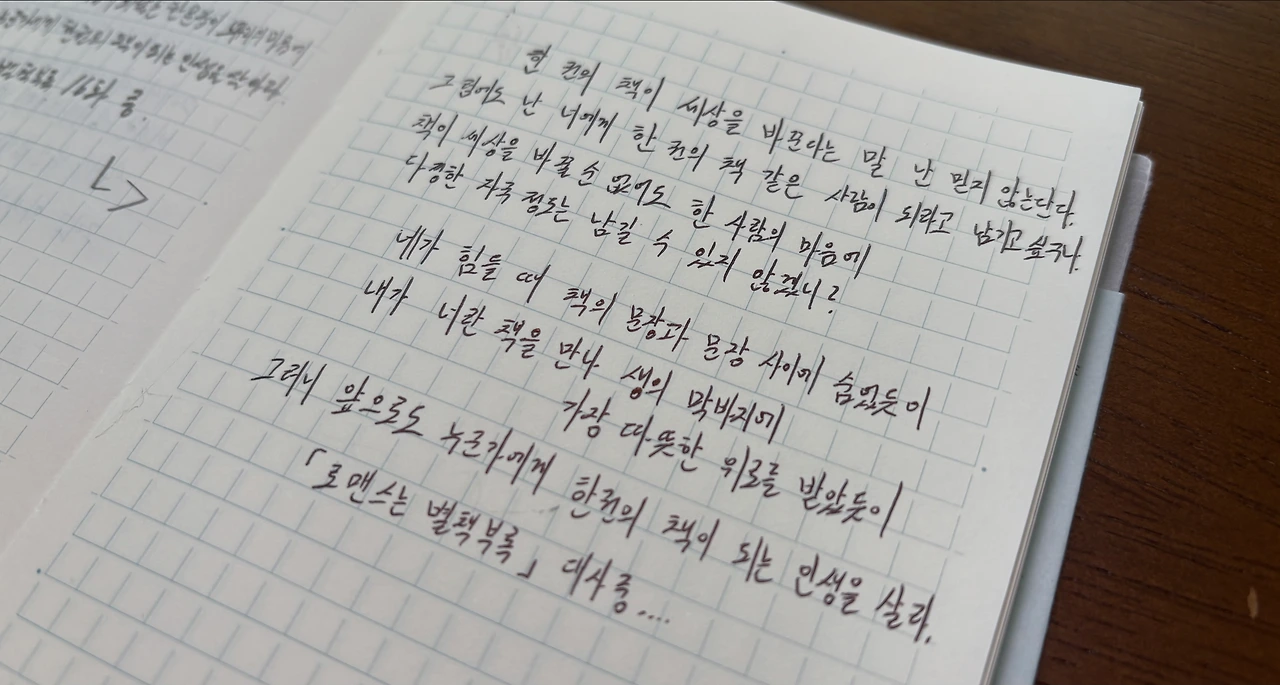 한 권의 책이 세상을 바꾼다는 말 난 믿지 않는단다.
그럼에도 난 너에게 한 권의 책 같은 사람이 되라고 남기고 싶구나.
책이 세상을 바꿀 순 없어도 한 사람의 마음에
다정한 자국 정도는 남길 수 있지 않겠니?
네가 힘들 때 책의 문장과 문장 사이에 숨었듯이
내가 너란 책을 만나 생의 막바지에
가장 따뜻한 위로를 받았듯이
그러니 앞으로도 누군가에게 한권의 책이 되는 인생을 살라.
「로맨스는 별책부록」 대사중....
16화 중.